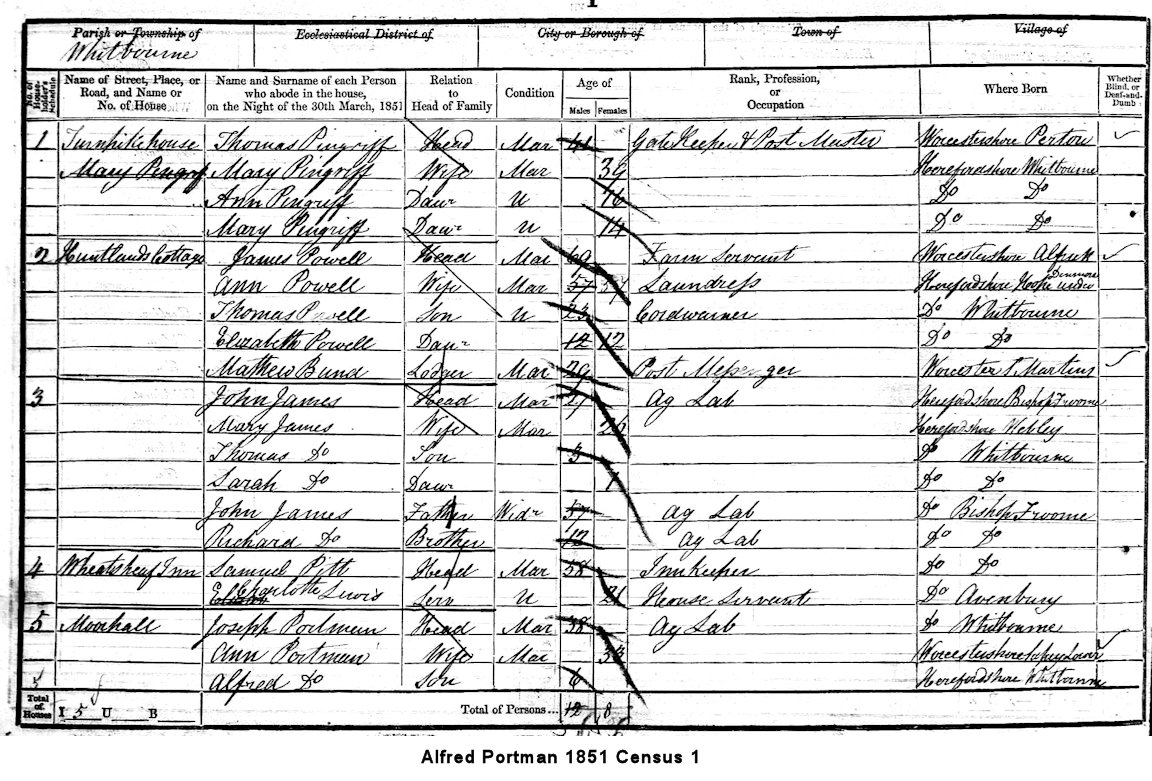 Parish or Township of Ecclesiastical District of City or Borough of Town of Village of
Whitbourne
No. of Householder's Schedule Name of Street, Place, or Road, and Name or No. of House Name and Surname of each Person who abode in the house, on the Night of the 30th March, 1851 Relation to Head of Family Condition Age of Males Females Rank, Profession, or Occupation Where Born Whether Blind, or Deaf-and-Dumb
1 Turnpikehouse Thomas Pingriff Head Mar 41 Gate Keeper & Post Master Worcestershire
Mary Mary Pingriff Wife Mar 39 Herefordshire Whitbourne
Ann Pingriff Daur U 16 Do Do
Mary Pingriff Daur U 14 Do Do
2 Huntlands Cottage James Powell Head Mar 69 Farm Servant Worcestershire
Ann Powell Wife Mar 57 57 Laundress Herefordshire Hope under Dinmore
Thomas Powell Son U 23 Cordwainer Do Whitbourne
Elizabeth Powell Daur 12 12 Do Do
Mathew Bund Lodger Mar 29 Post Messenger Worcester St Martins
3 John James Head Mar 27 Ag Lab Herefordshire Bishop Froome
Mary James Wife Mar 26 Herefordshire Webley
Thomas Do Son 3 Do Whitbourne
Sarah Do Daur 1 Do Do
John James Father Widr 57 Ag Lab Do Bishop Froome
Richard Do Brother 12 Ag Lab Do Do
4 Wheatsheaf Inn Samuel Pitt Head Mar 58 Innkeeper Do Do
Charlotte Lewis Serv U 21 House Servant Do Avenbury
5 Moorhall Joseph Portman Head Mar 38 Ag Lab Do Whitbourne
Ann Portman Wife Mar 33 Worcestershire
Alfred Do Son 6 Herefordshire Whitbourne
Total of Houses I 5 U B Total of Persons... 12 8
Alfred Portman 1851 Census 1